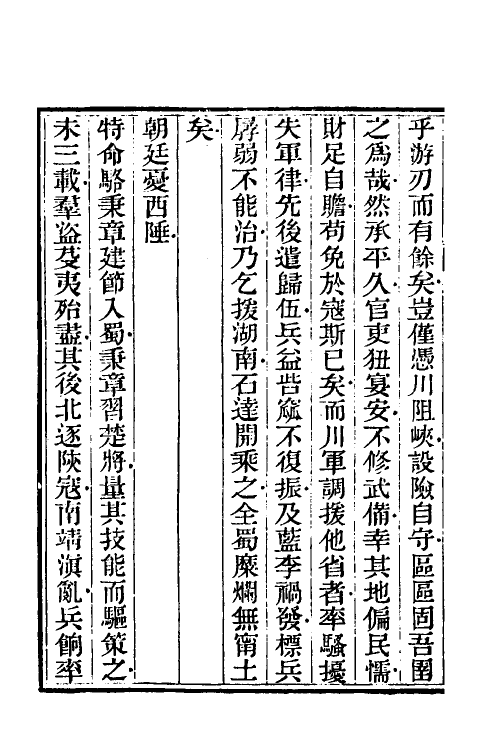 乎游刃而有餘矣豈僅憑川阻峽設險自守區區固吾圉
之爲哉然承平久官吏狃宴安不修武備幸其地偏民懦
財足自贍苟免於寇斯已矣而川軍調援他省者率騷擾
失軍律先後遣歸伍兵益呰窳不復振及藍李禍發標兵
孱弱不能治乃乞援湖南石達開乘之全蜀糜爛無甯土
矣
朝廷憂西陲
特命駱秉章建節入蜀秉章習楚將量其技能而驅策之
未三載羣盜芟夷殆盡其後北逐陝寇南靖滇亂兵餉率